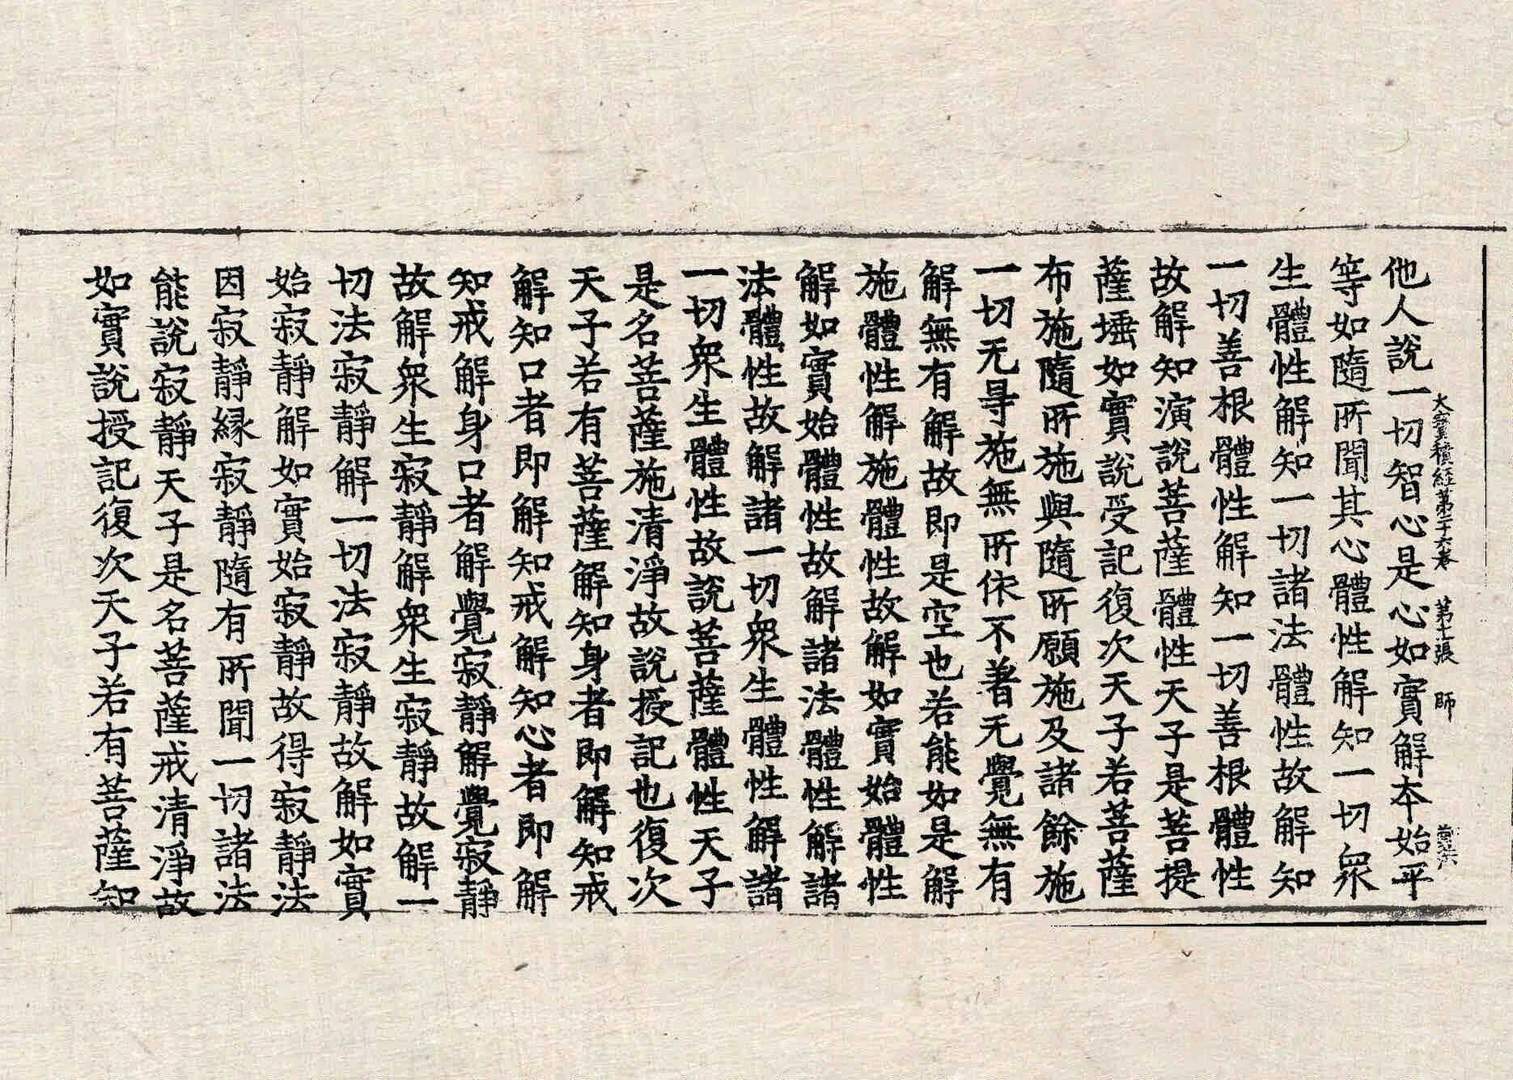 大寶積經第二十六卷 師
他人說一切智心是心如實解本始平
等如隨所聞其心體性解知一切衆
生體性解知一切諸法體性故解知
一切善根體性解知一切善根體性
故解知演說菩薩體性天子是菩提
薩埵如實說受記復次天子若菩薩
布施隨所施與隨所願施及諸餘施
一切无㝵施無所依不著无覺無有
解無有解故即是空也若能如是解
施體性解施體性故解如實始體性
解如實始體性故解諸法體性解諸
法體性故解諸一切衆生體性解諸
一切衆生體性故說菩薩體性天子
是名菩薩施清淨故說授記也復次
天子若有菩薩解知身者即解知戒
解知口者即解知戒解知心者即解
知戒解身口者解覺寂靜解覺寂靜
故解衆生寂靜解衆生寂靜故解一
切法寂靜解一切法寂靜故解如實
始寂靜解如實始寂靜故得寂靜法
因寂靜緣寂靜隨有所聞一切諸法
能說寂靜天子是名菩薩戒清淨故
如實說授記復次天子若有菩薩知